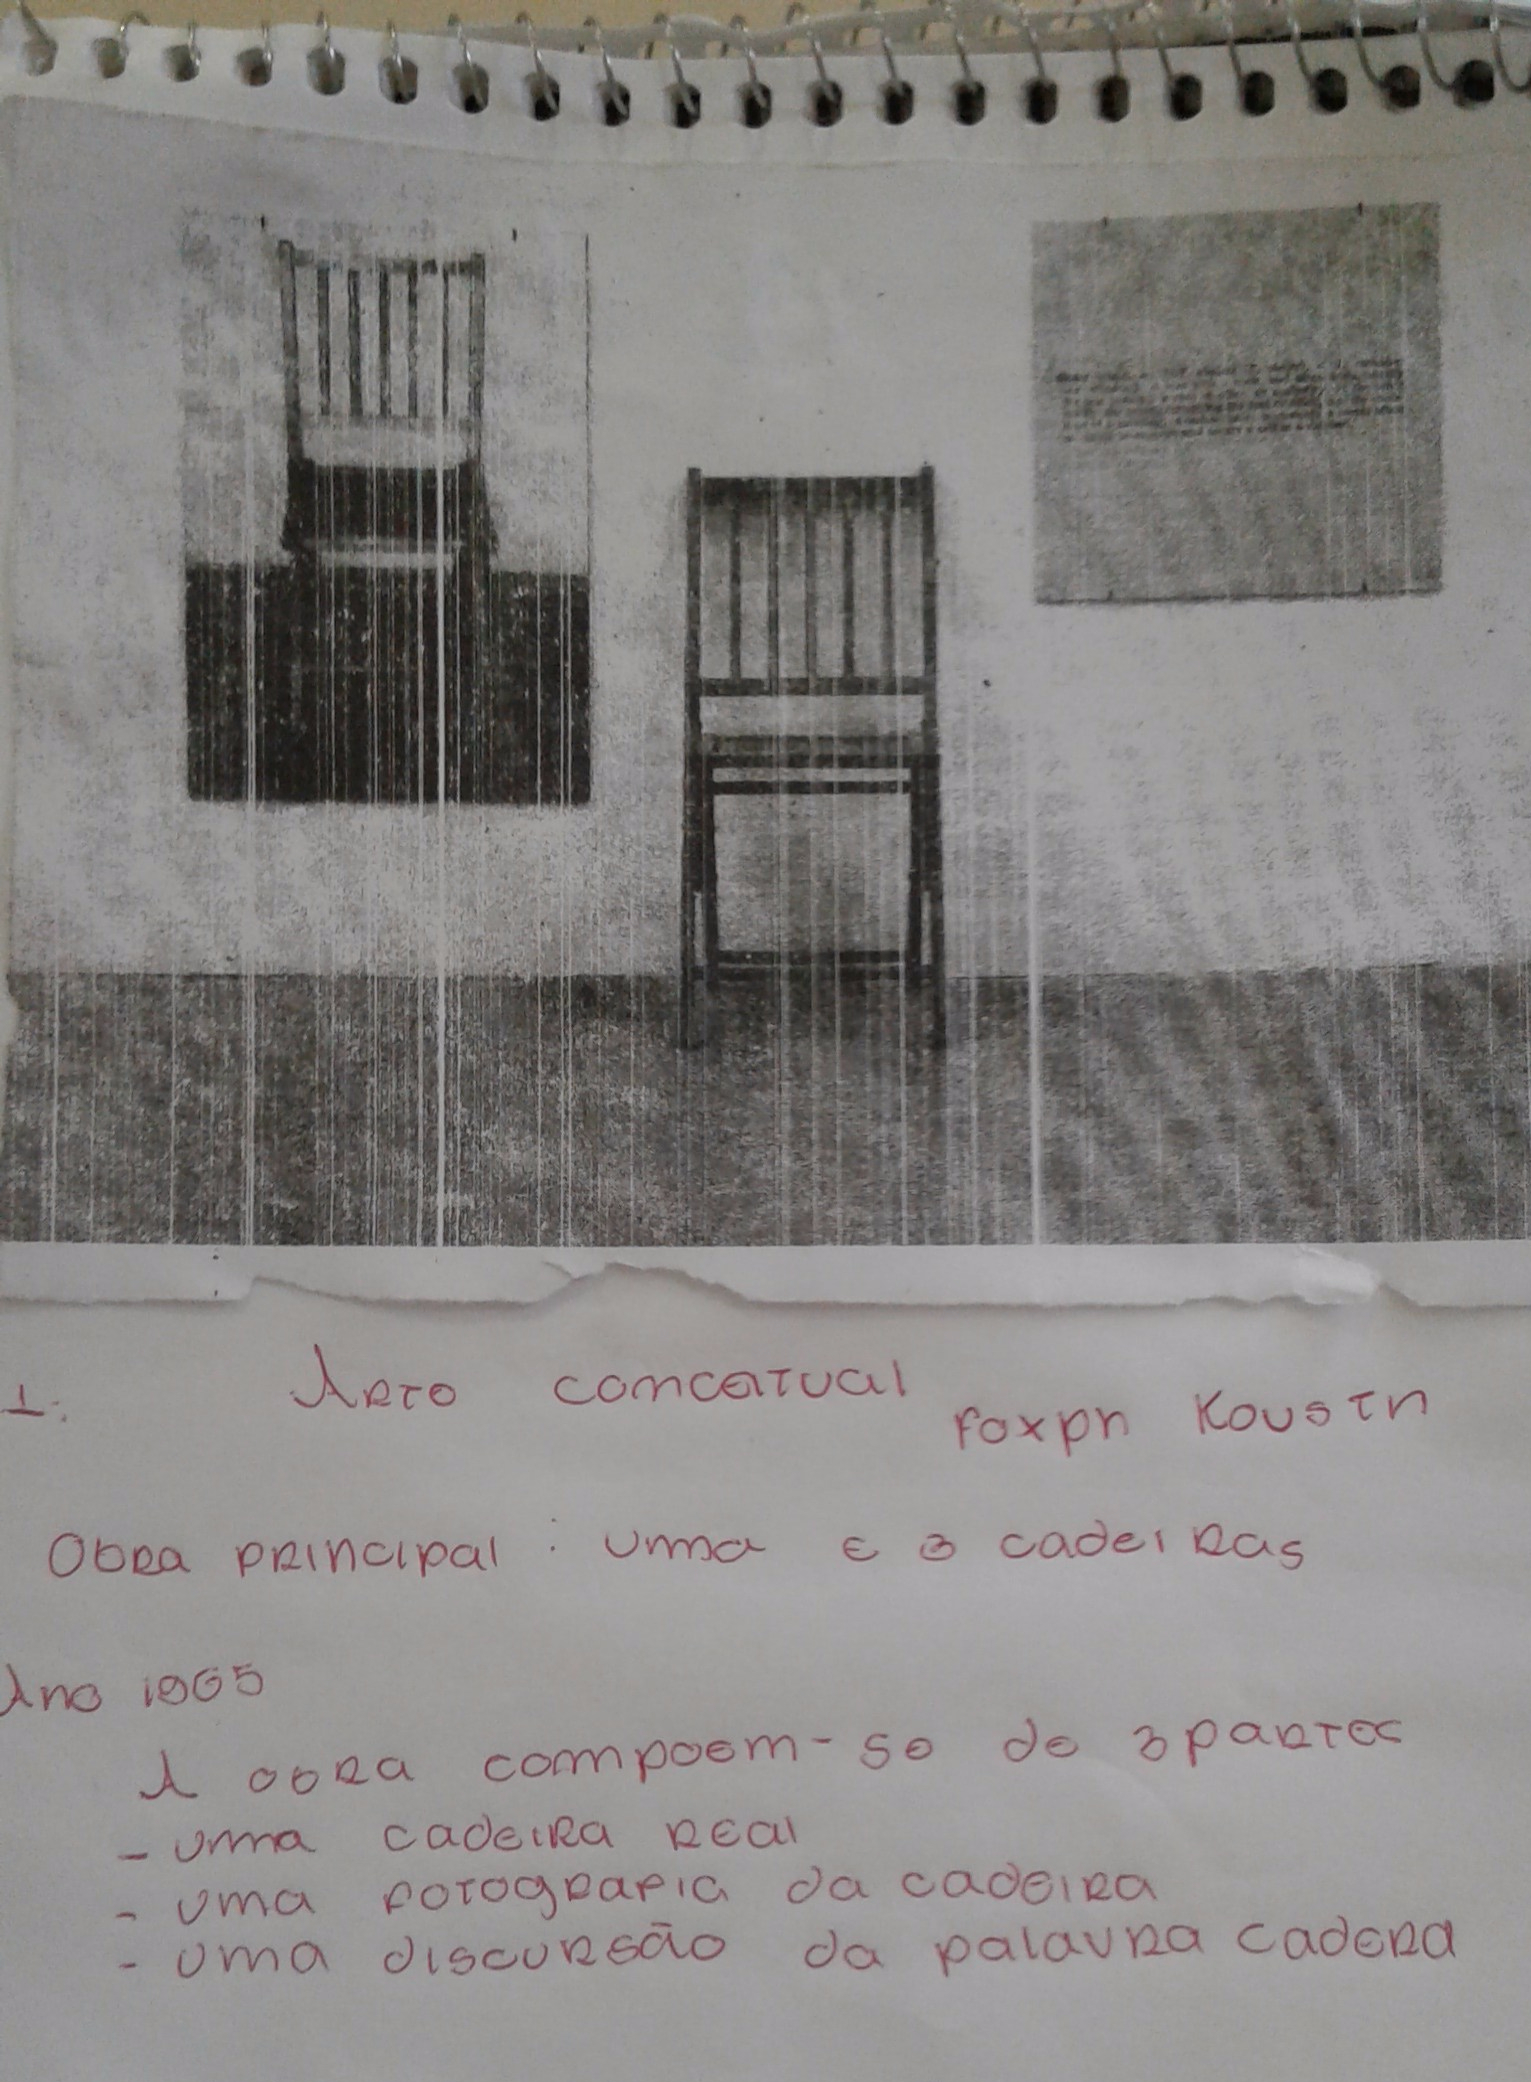 1. Arte conceitual
Foxph Kousth
Obra principal : uma e 3 cadeiras
Ano 1965
A obra compoem-se de 3 partes
- uma cadeira real
- uma fotografia da cadeira
- uma discursão da palavra cadera